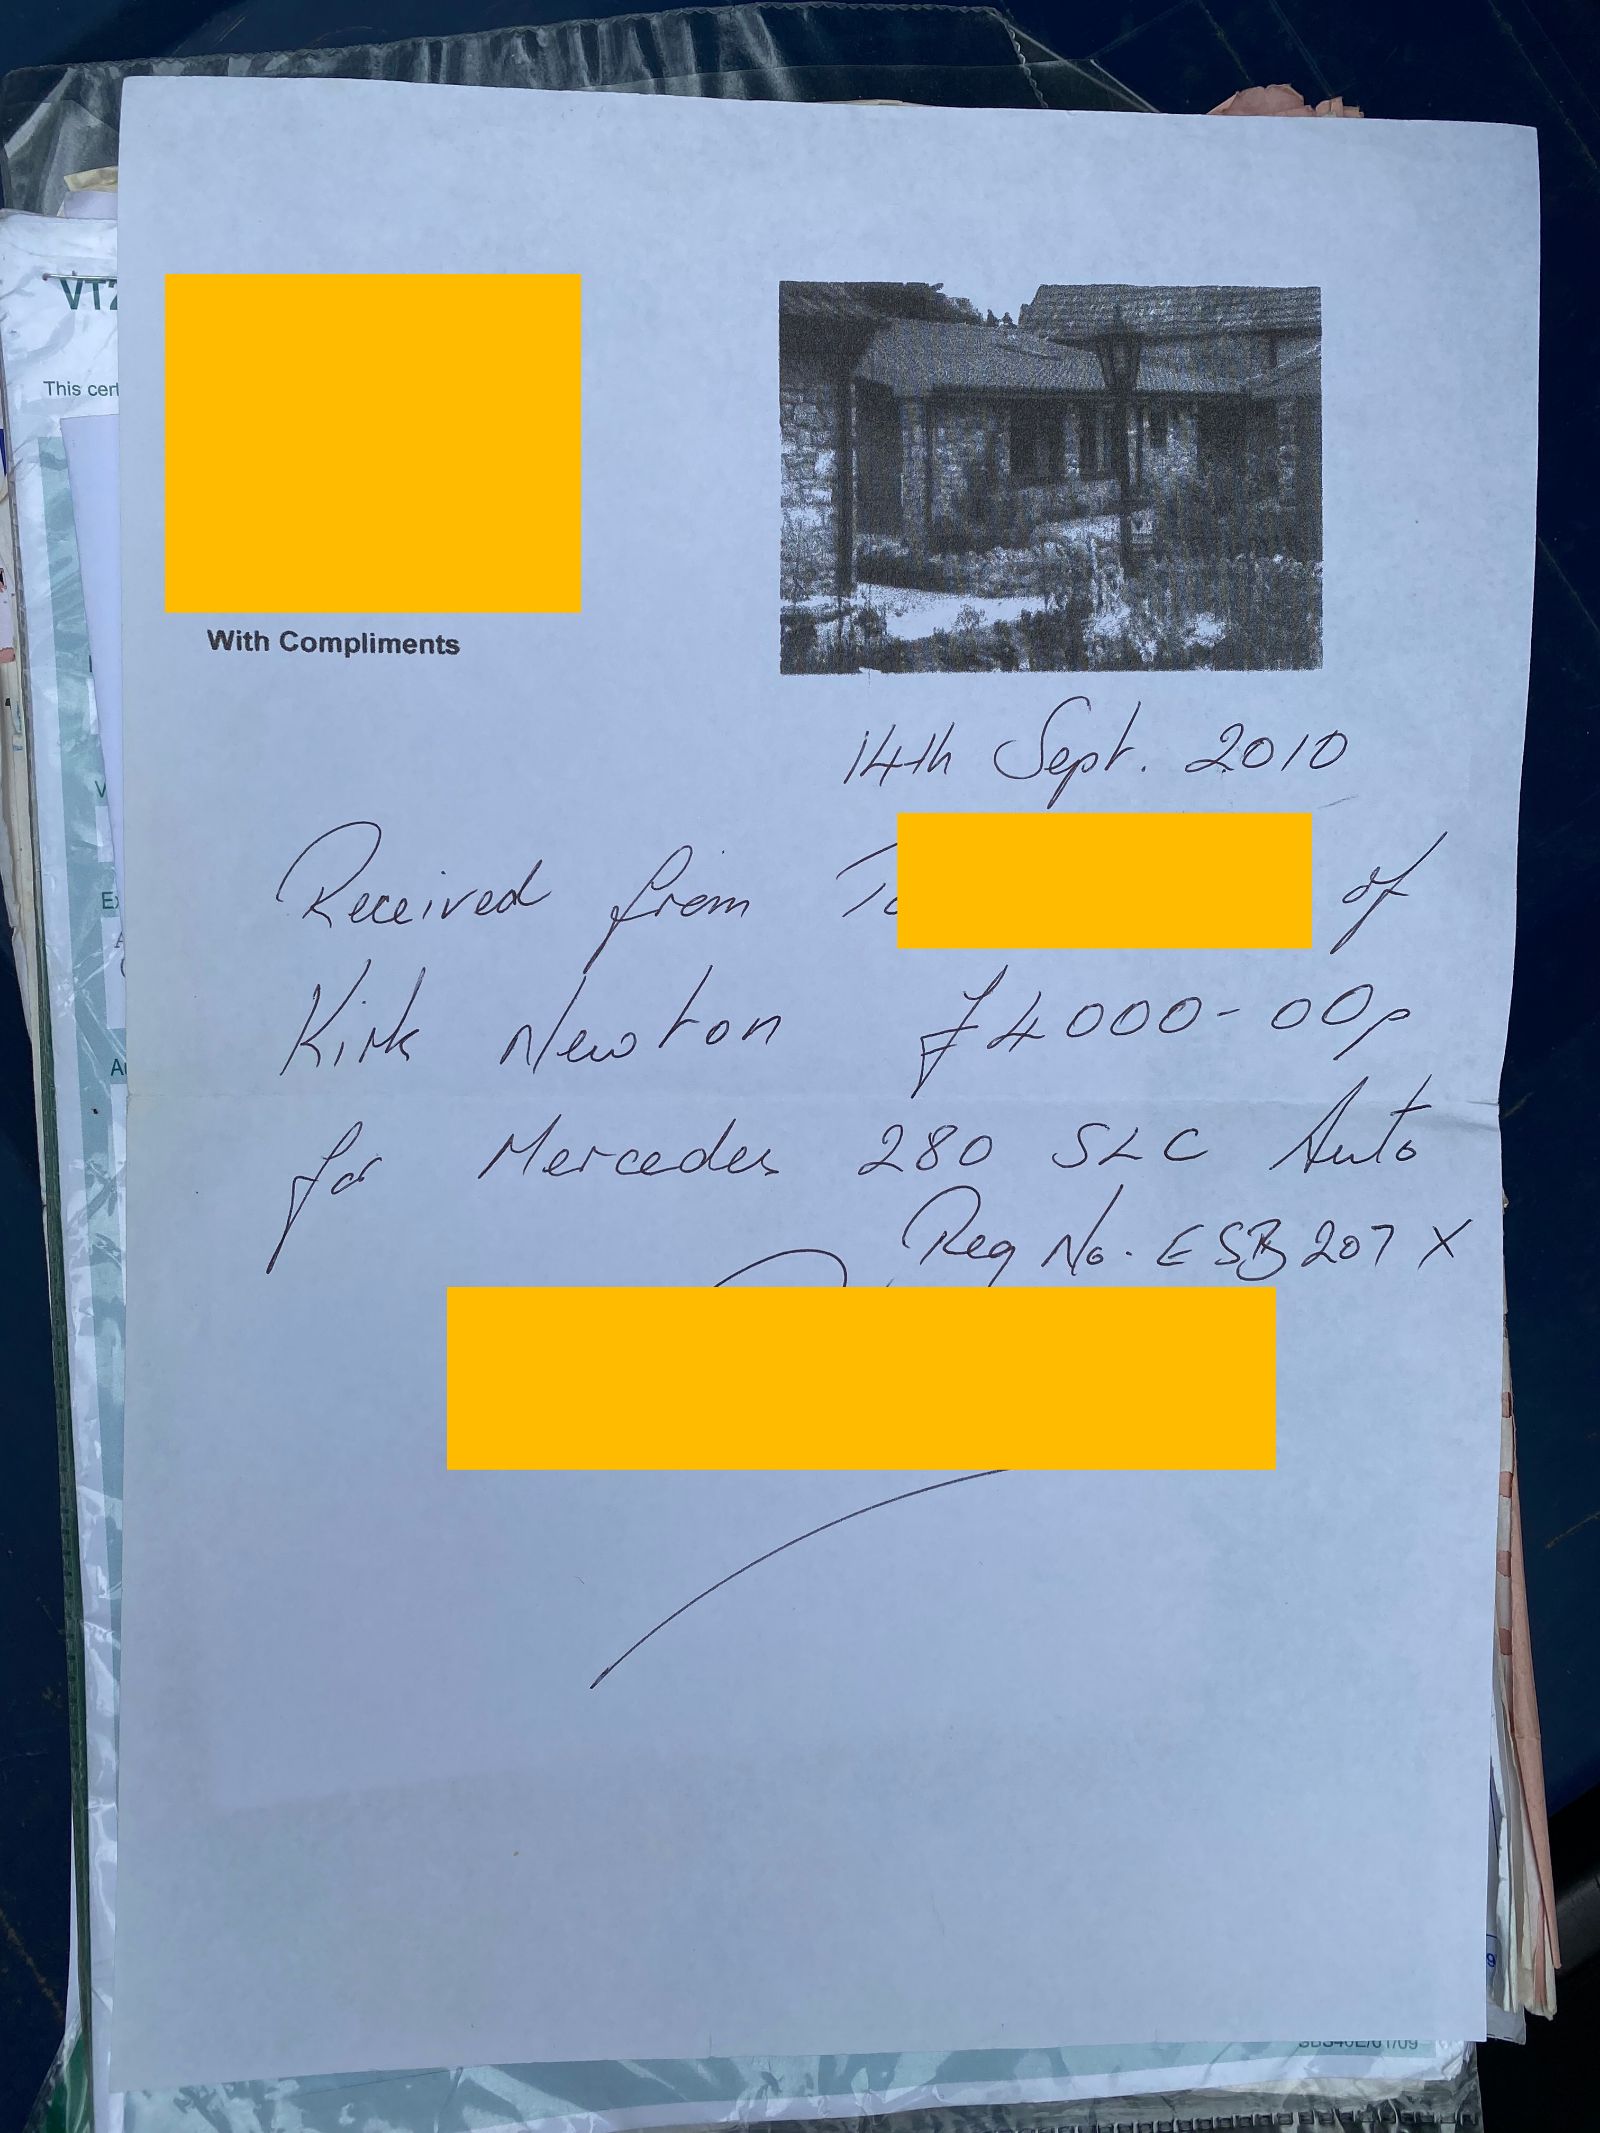 VTZ
This cert
With Compliments
14th Sept. 2010
Received from of
Kirk Newton £4000-00p
for Mercedes 280 SLC Auto
Reg No. ESB 207 X
SB340E/01/09